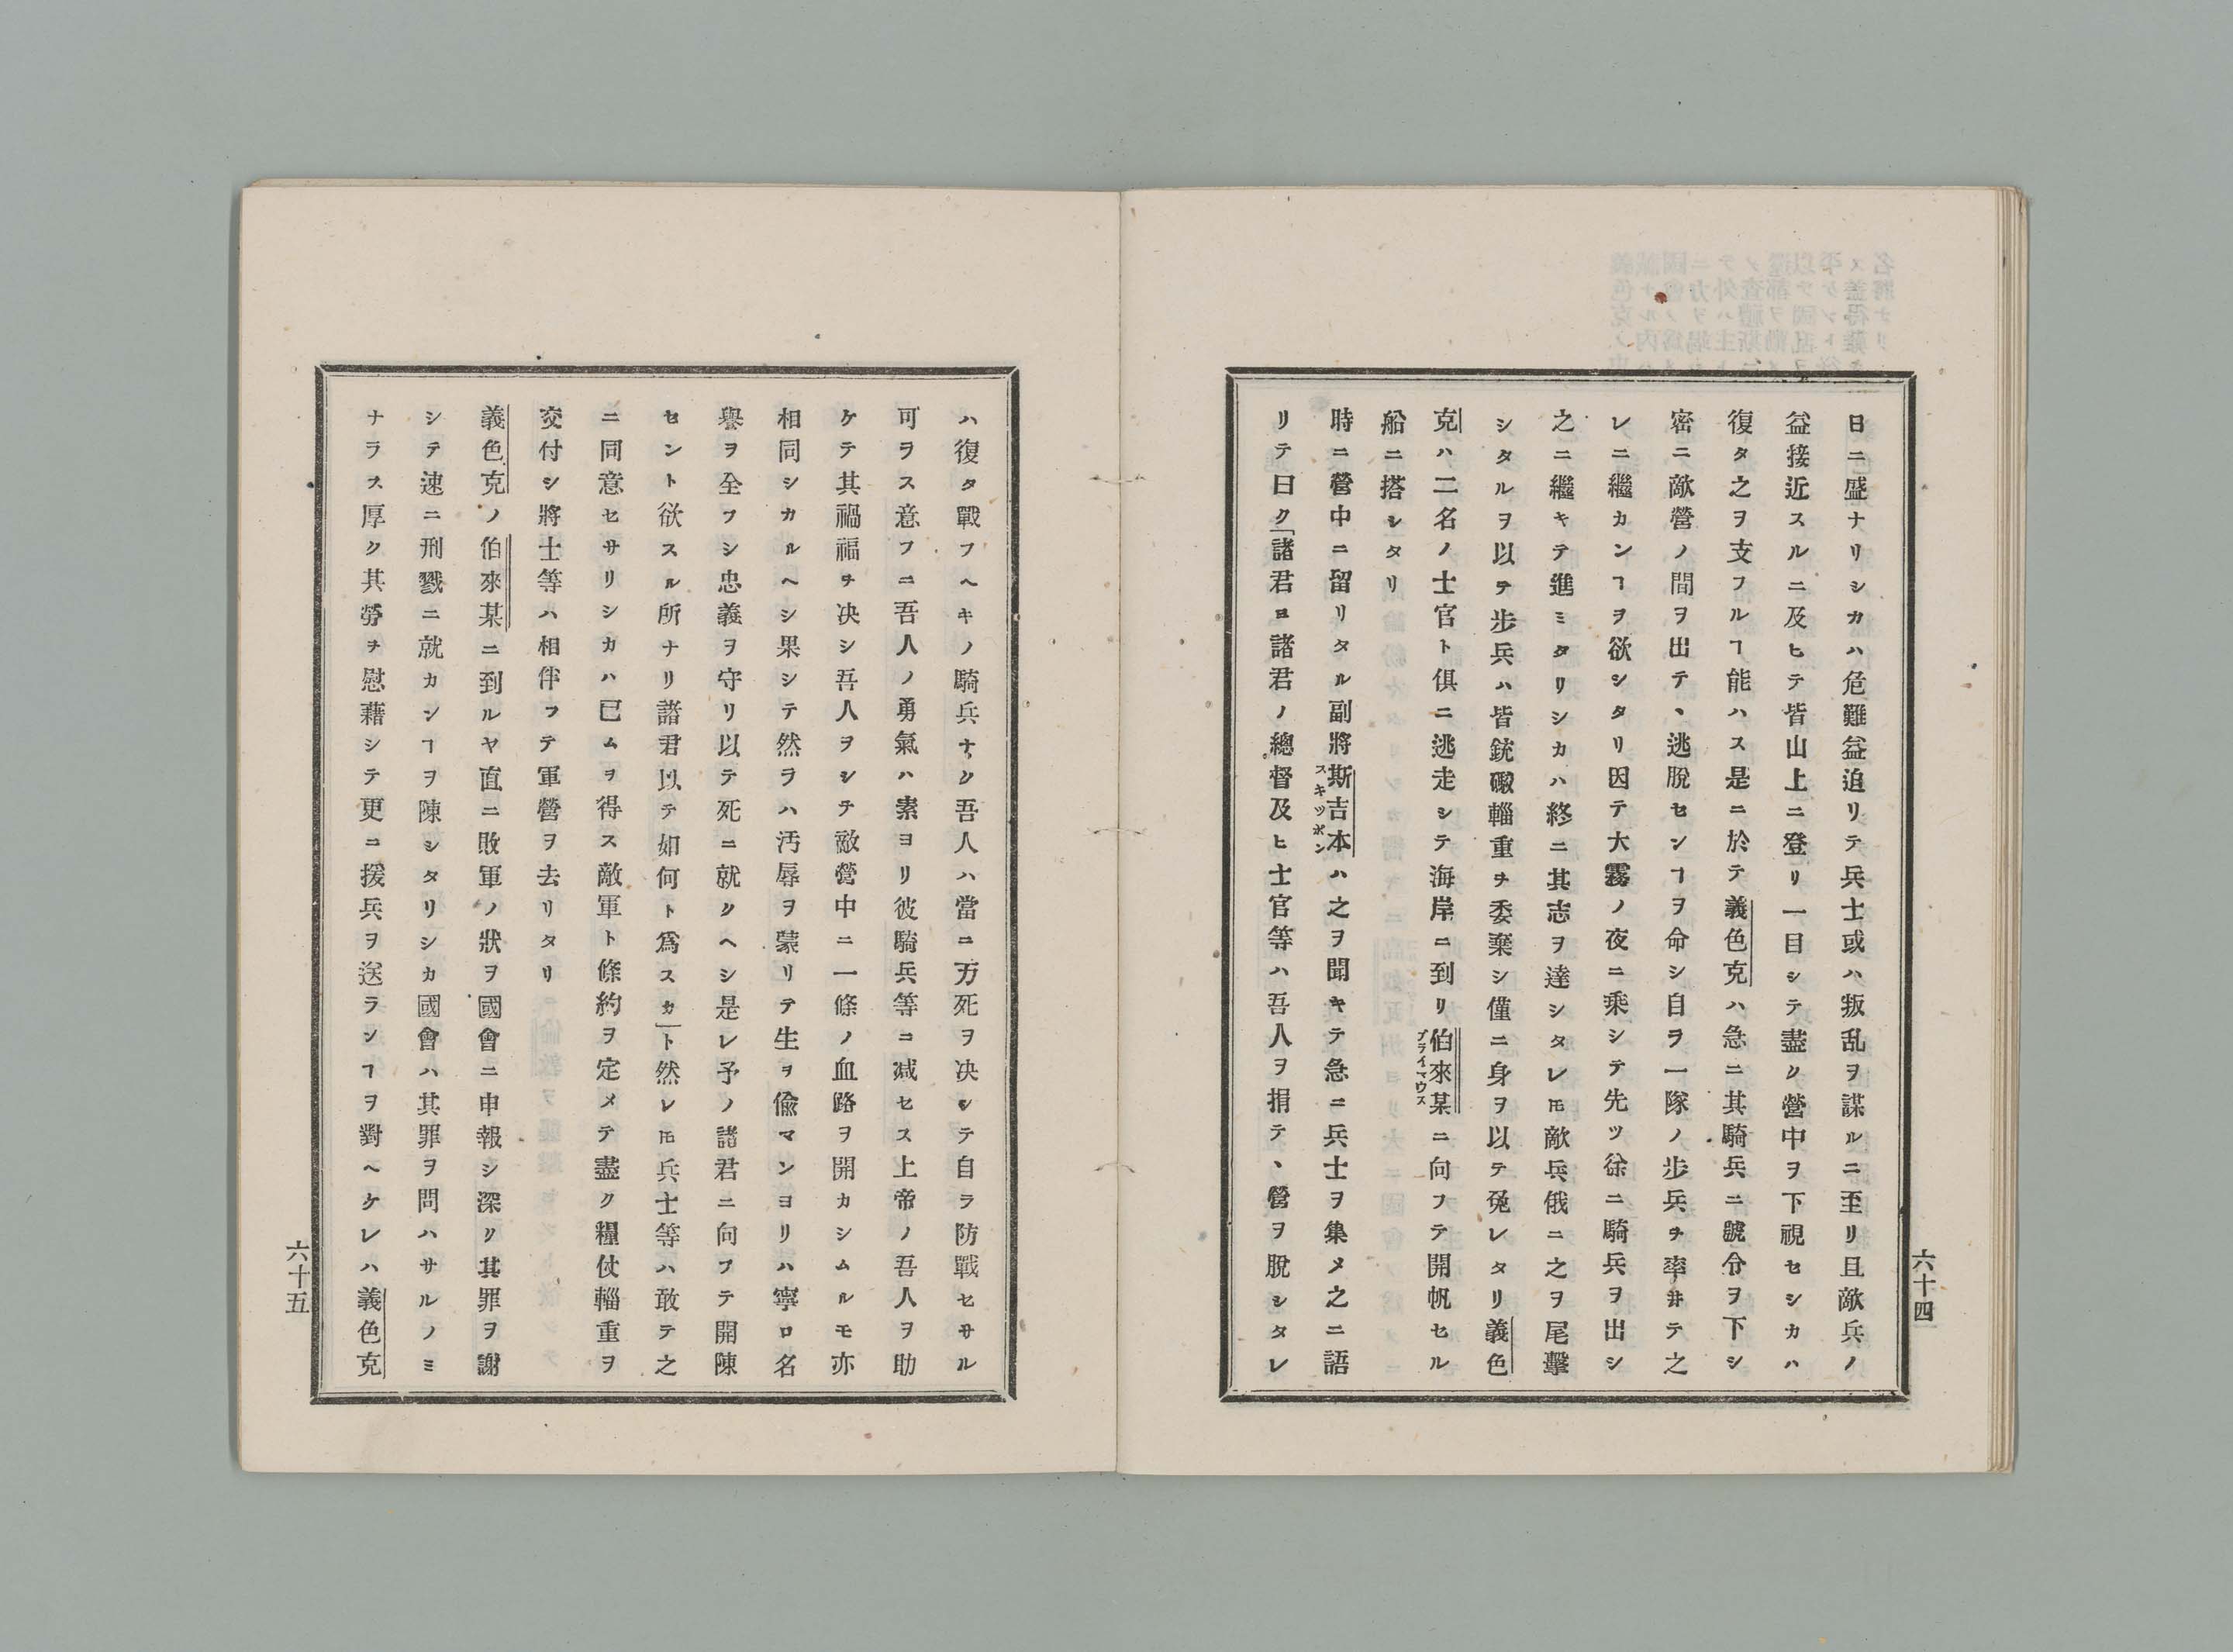 日ニ盛ナリシカハ危難益迫リテ兵士或ハ叛乱ヲ謀ルニ至リ且敵兵ノ
益接近スルニ及ヒテ皆山上ニ登リ一目シテ盡ク營中ヲ下視セシカハ
復タ之ヲ支フルヿ能ハス是ニ於テ義色克ハ急ニ其騎兵ニ號令ヲ下シ
密ニ敵營ノ間ヲ出テヽ逃脫センヿヲ命シ自ラ一隊ノ步兵ヲ率井テ之
レニ繼カンヿヲ欲シタリ因テ大霧ノ夜ニ乘シテ先ツ徐ニ騎兵ヲ出シ
之ニ繼キテ進ミタリシカハ終ニ其志ヲ達シタレ𪜈敵兵俄ニ之ヲ尾擊
シタルヲ以テ步兵ハ皆銃礮輜重ヲ委棄シ僅ニ身ヲ以テ免レタリ義色
克ハ二名ノ士官ト俱ニ逃走シテ海岸ニ到リ伯來某ニ向フテ開帆セル
プライマウス
船ニ搭シタリ
時ニ營中ニ留リタル副將斯吉本ハ之ヲ聞キテ急ニ兵士ヲ集メ之ニ語
スキッポン
リテ曰ク「諸君ヨ諸君ノ總督及ヒ士官等ハ吾人ヲ捐テヽ營ヲ脫シタレ
六十四
ハ復タ戰フヘキノ騎兵ナク吾人ハ當ニ万死ヲ决シテ自ラ防戰セサル
可ヲス意フニ吾人ノ勇氣ハ素ヨリ彼騎兵等ニ减セス上帝ノ吾人ヲ助
ケテ其禍福ヲ决シ吾人ヲシテ敵營中ニ一條ノ血路ヲ開カシムルモ亦
相同シカルヘシ果シテ然ラハ汚辱ヲ蒙リテ生ヲ偸マンヨリハ寧ロ名
譽ヲ全フシ忠義ヲ守リ以テ死ニ就クヘシ是レ予ノ諸君ニ向フテ開陳
セント欲スル所ナリ諸君以テ如何ト爲スカ」ト然レ𪜈兵士等ハ敢テ之
ニ同意セサリシカハ已ムヲ得ス敵軍ト條約ヲ定メテ盡ク糧仗輜重ヲ
交付シ將士等ハ相伴フテ軍營ヲ去リタリ
義色克ノ伯來某ニ到ルヤ直ニ敗軍ノ狀ヲ國會ニ申報シ深ク其罪ヲ謝
シテ速ニ刑戮ニ就カンヿヲ陳シタリシカ國會ハ其罪ヲ問ハサルノミ
ナラス厚ク其勞ヲ慰藉シテ更ニ援兵ヲ送ランヿヲ對ヘケレハ義色克
六十五